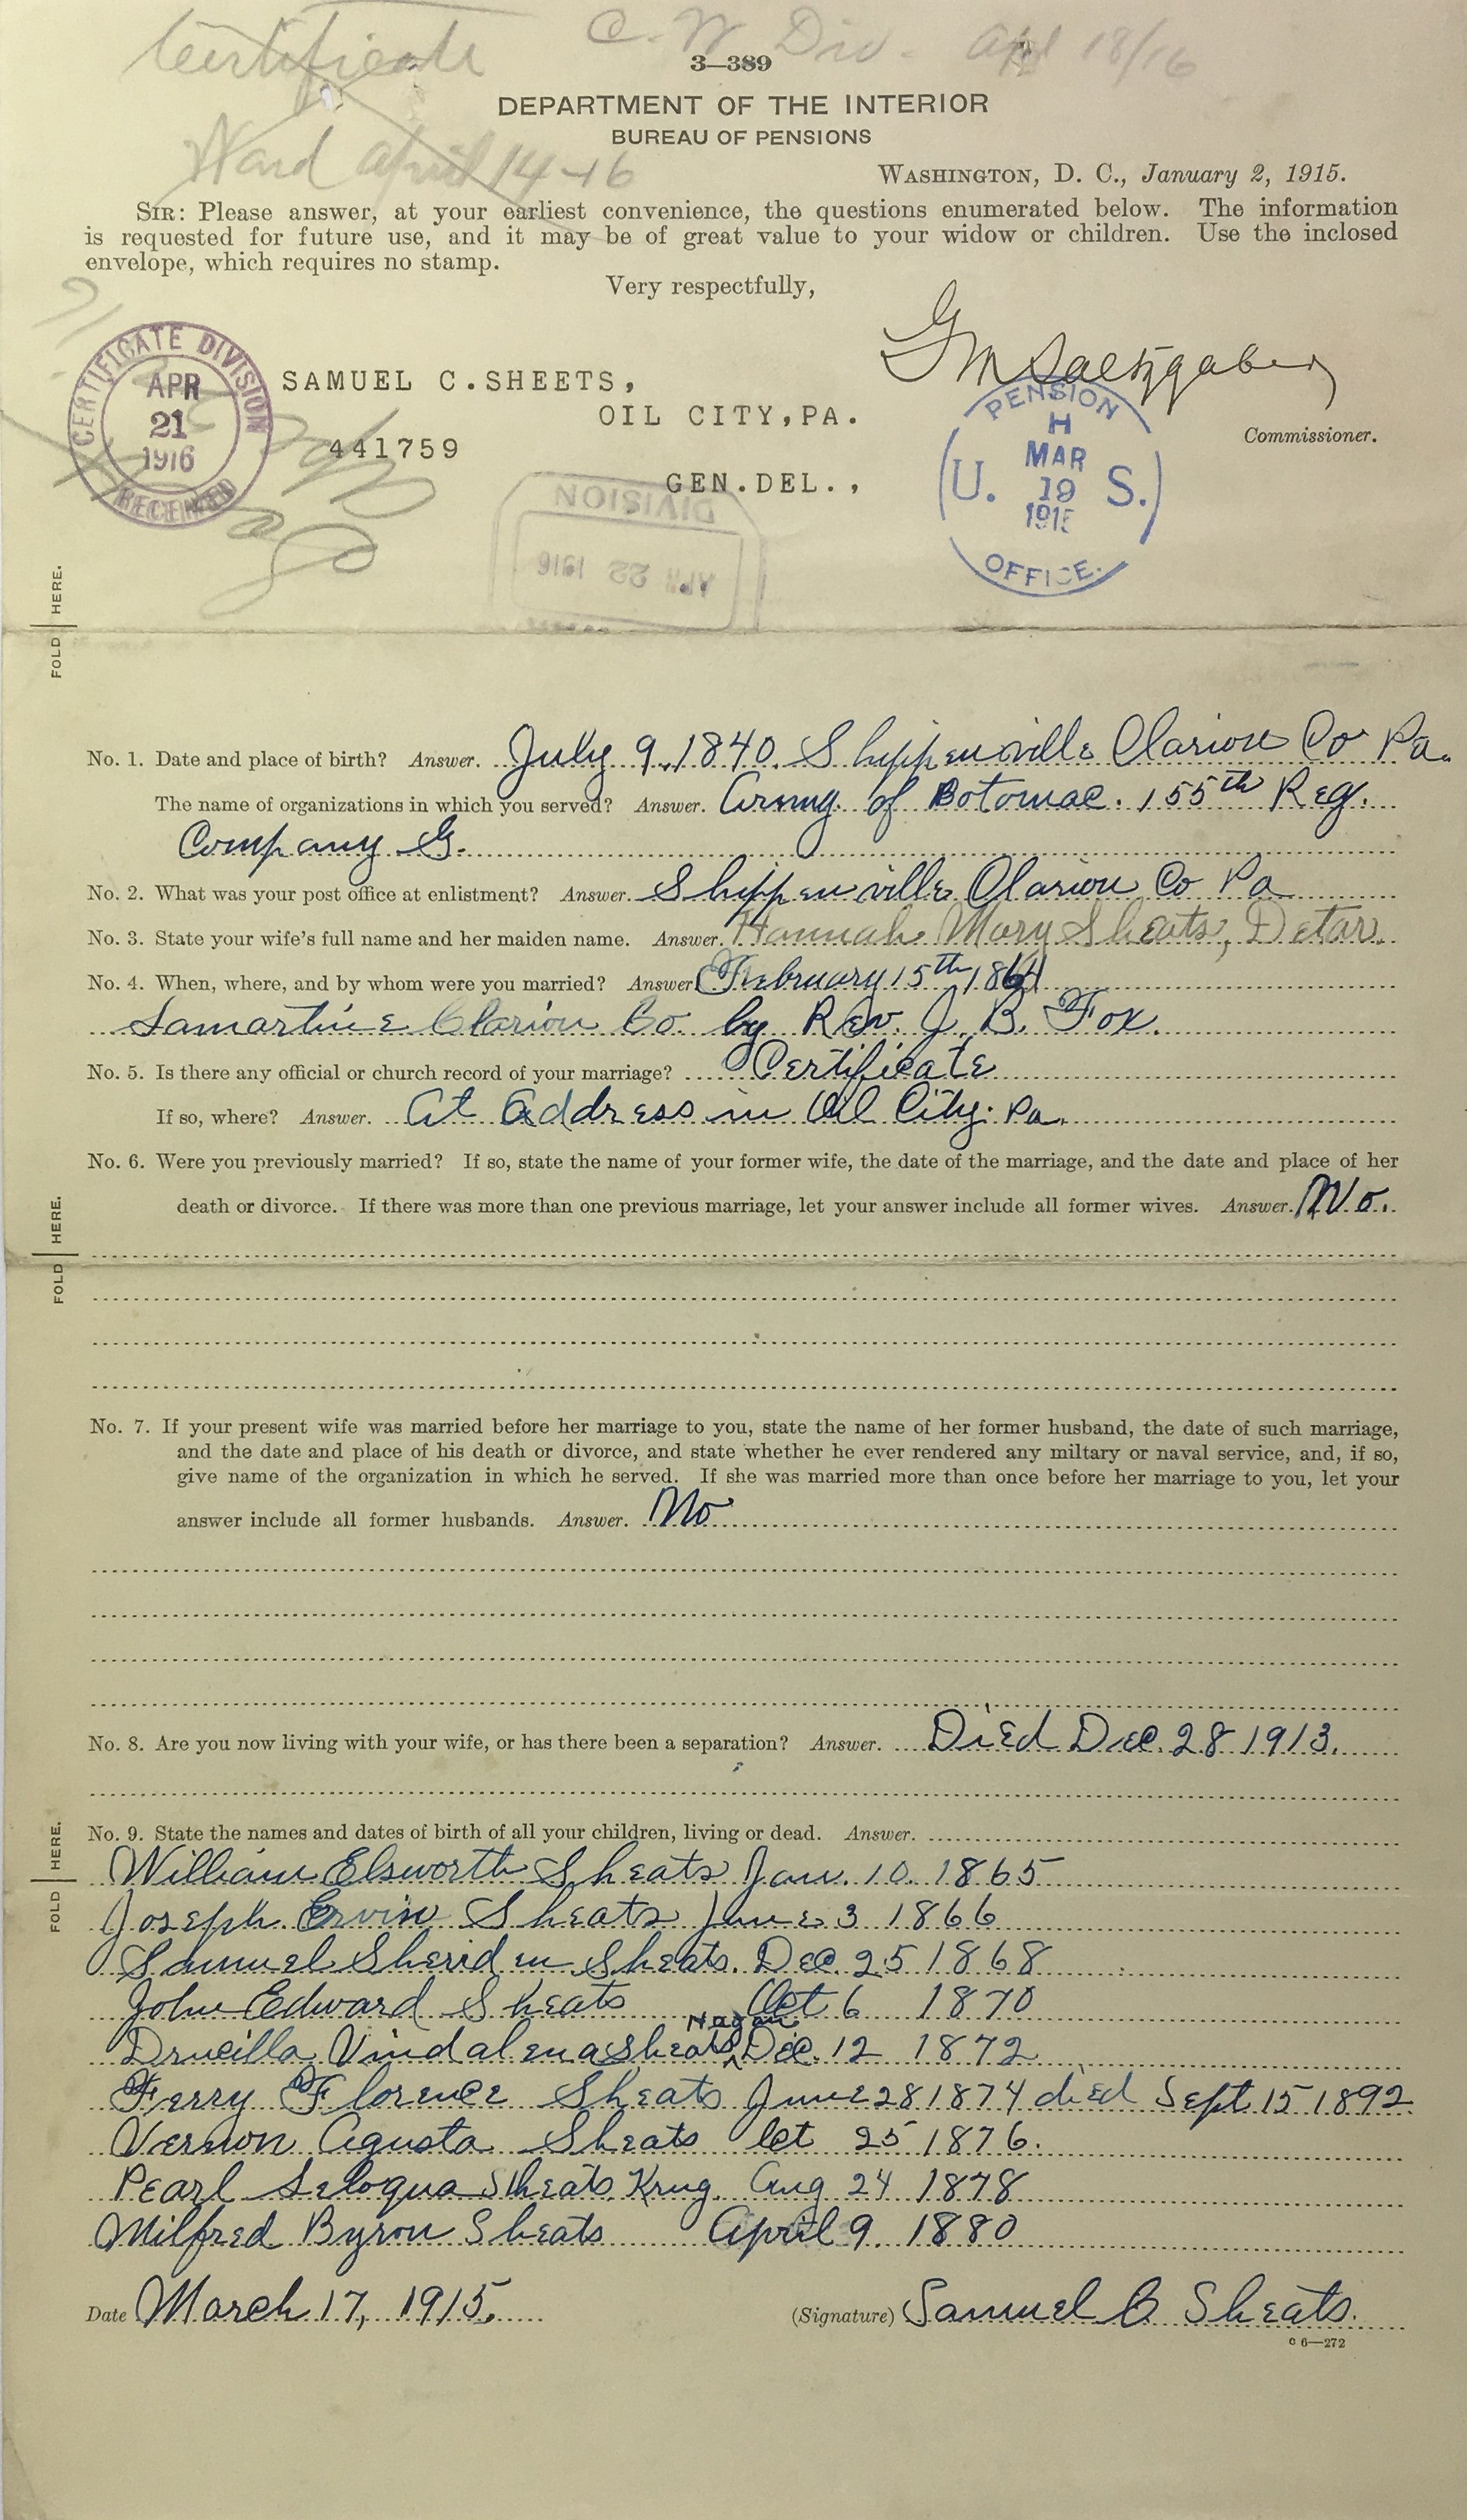 Certificate C. W Div. Apl 18/16
3—389
DEPARTMENT OF THE INTERIOR
BUREAU OF PENSIONS
Ward april 14-16
WASHINGTON, D. C., January 2, 1915.
SIR: Please answer, at your earliest convenience, the questions enumerated below. The information
is requested for future use, and it may be of great value to your widow or children. Use the inclosed
envelope, which requires no stamp.
Very respectfully,
G M Saltzgaber
Commissioner.
CERTIFICATE DIVISION
APR
21
1916
RECEIVED
SAMUEL C.SHEETS,
OIL CITY,PA.
441759
GEN.DEL.,
PENSION
H
MAR
U. 19 S.
1915
OFFICE.
DIVISION
APR 22 1916
FOLD HERE.
No. 1. Date and place of birth? Answer. July 9, 1840. Shippenville Clarion Co Pa.
The name of organizations in which you served? Answer. Army of Botomac. 155th Reg.
Company G.
No. 2. What was your post office at enlistment? Answer. Shippenville Clarion Co Pa
No. 3. State your wife's full name and her maiden name. Answer. Hannah Mary Sheats, Detar.
No. 4. When, where, and by whom were you married? Answer February 15th 1864
Lamartine Clarion Co. by Rev. J. B. Fox.
No. 5. Is there any official or church record of your marriage? Certificate
If so, where? Answer. At Address in Oil City. Pa.
No. 6. Were you previously married? If so, state the name of your former wife, the date of the marriage, and the date and place of her
death or divorce. If there was more than one previous marriage, let your answer include all former wives. Answer. No.
FOLD HERE.
No. 7. If your present wife was married before her marriage to you, state the name of her former husband, the date of such marriage,
and the date and place of his death or divorce, and state whether he ever rendered any miltary or naval service, and, if so,
give name of the organization in which he served. If she was married more than once before her marriage to you, let your
answer include all former husbands. Answer. No
No. 8. Are you now living with your wife, or has there been a separation? Answer. Died Dec. 28 1913.
No. 9. State the names and dates of birth of all your children, living or dead. Answer.
FOLD HERE.
William Elsworth Sheats Jan. 10. 1865
Joseph Ervin Sheats June 3 1866
Samuel Sheriden Sheats. Dec. 25 1868
John Edward Sheats Oct 6 1870
Drucilla Vindalena Sheats Nagan Dec. 12 1872
Ferry Florence Sheats June 28 1874 died Sept. 15 1892.
Vernon Agusta Sheats Oct 25 1876.
Pearl Seloqua Sheats. Krug. Aug 24 1878
Milfred Byron Sheats April 9. 1880
Date March 17, 1915. (Signature) Samuel C Sheats.
C 6—272